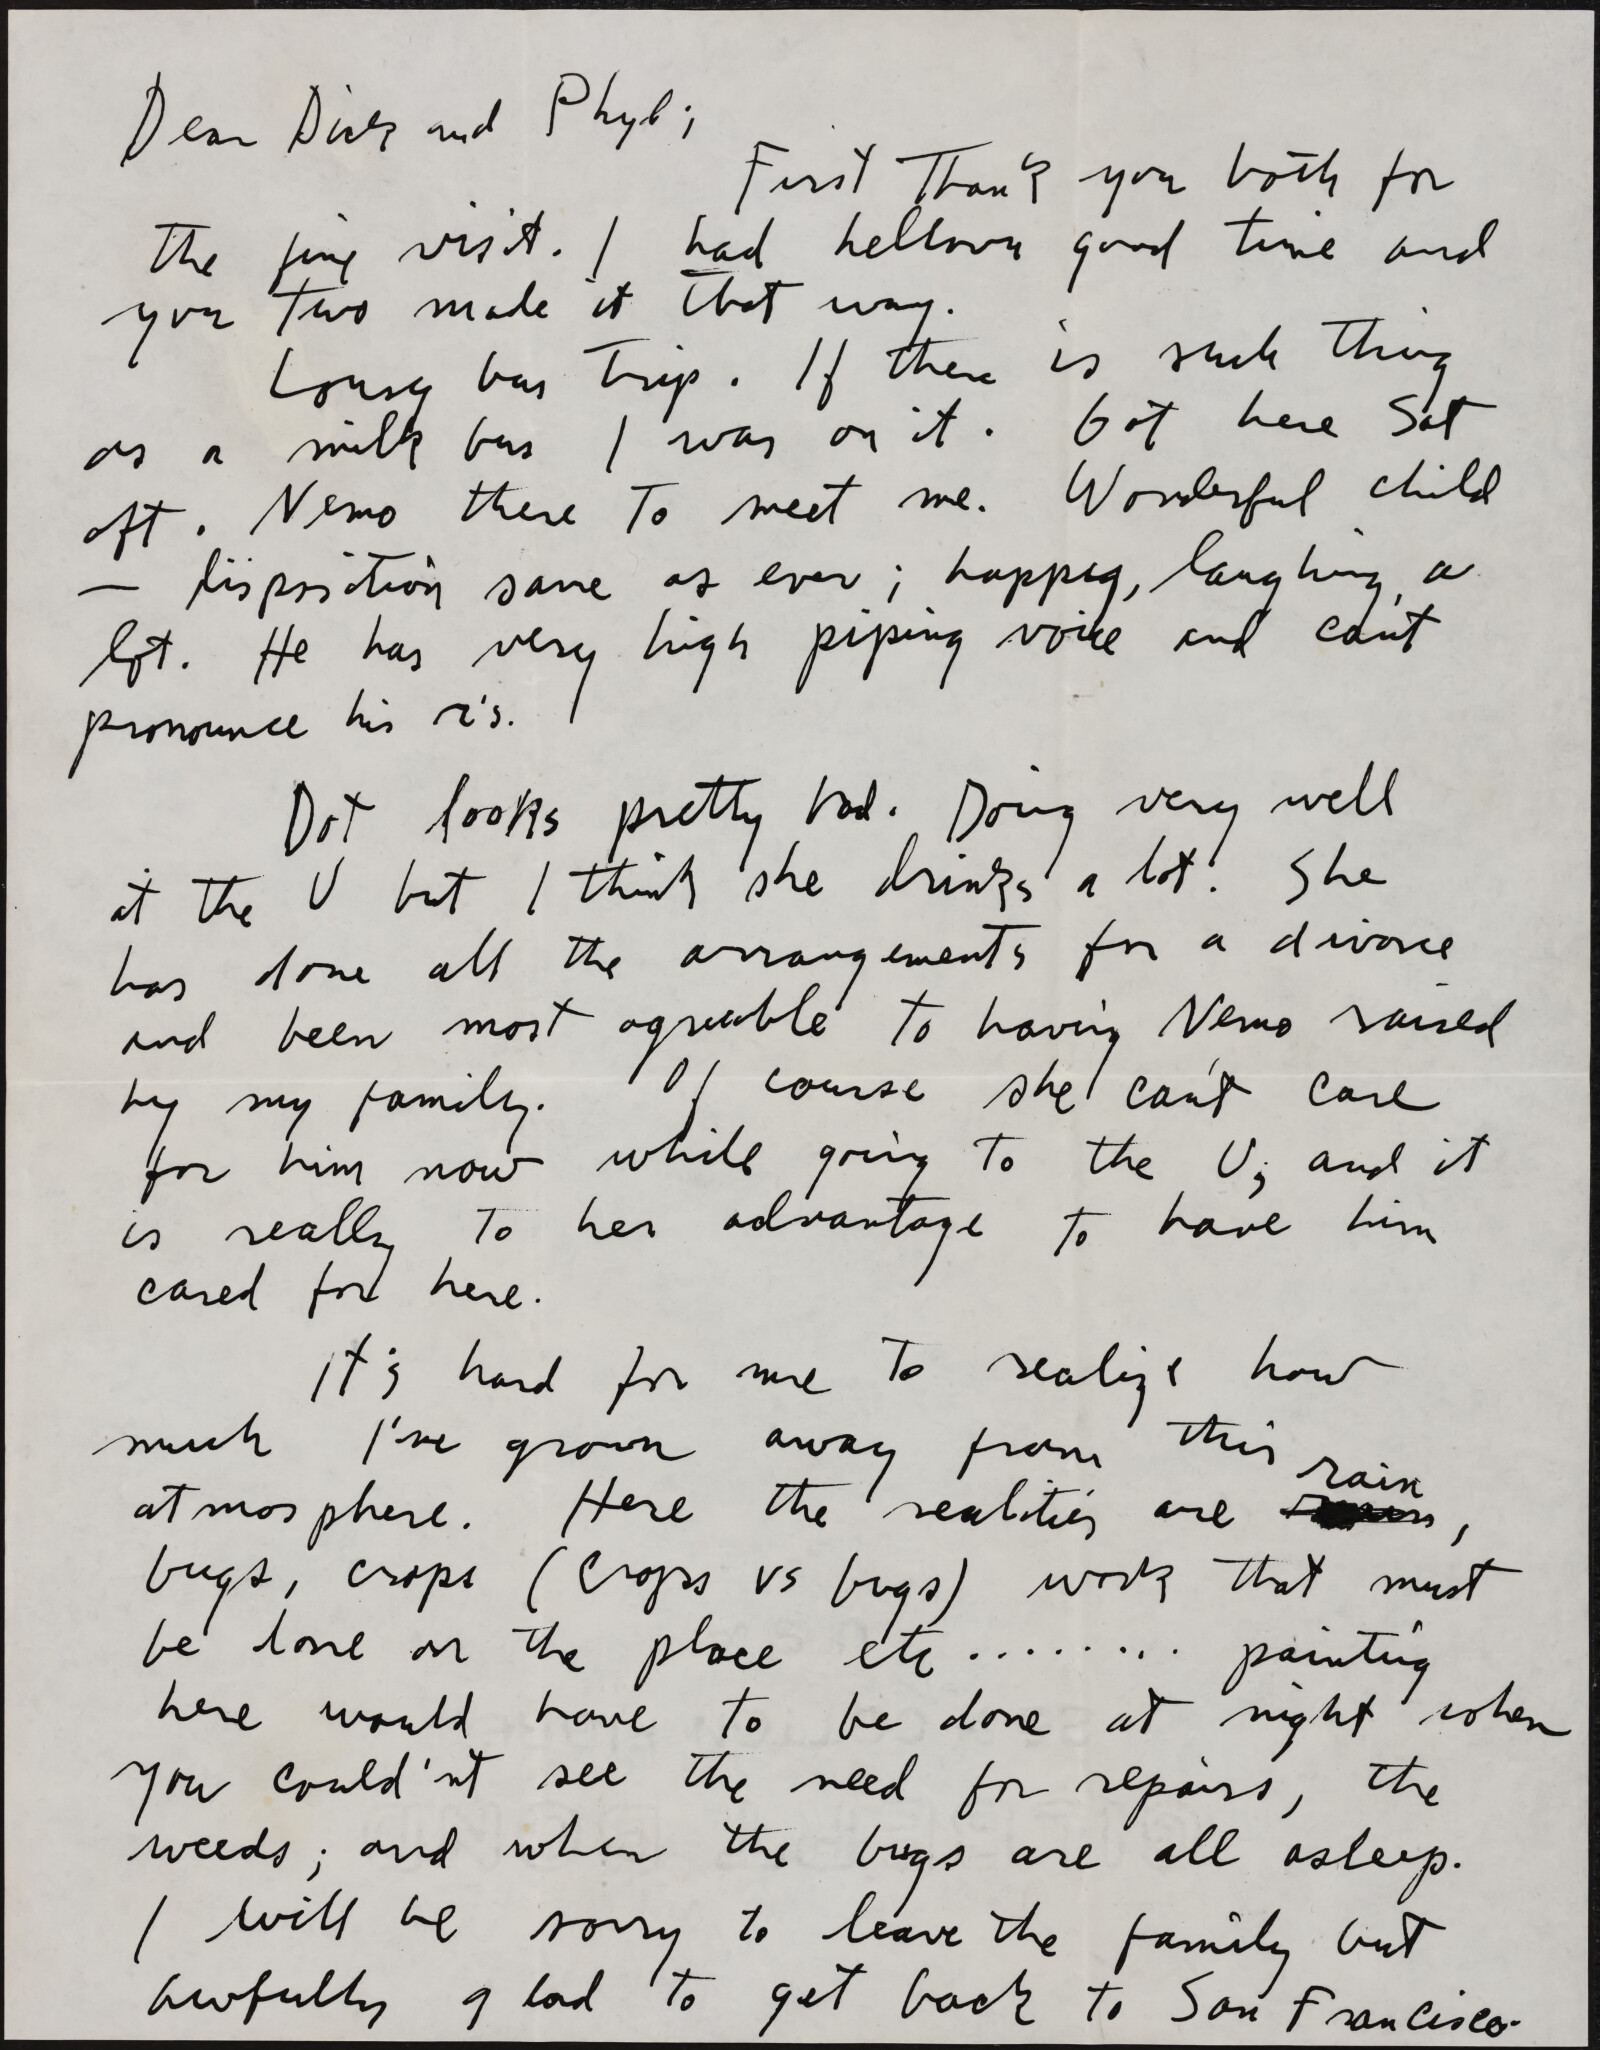 Dear Dick and Phyl;
First Thank you both for
the fine visit. I had hellova good time and
you two made it that way.
Lousy bus trip. If there is such thing
as a milk bus I was on it. Got here Sat
aft. Nemo there to meet me. Wonderful child
— disposition same as ever; happy, laughing a
lot. He has very high piping voice and can't
pronounce his r's.
Dot looks pretty bad. Doing very well
at the U but I think she drinks a lot. She
has done all the arrangements for a divorce
and been most agreable to having Nemo raised
by my family. Of course she can't care
for him now while going to the U, and it
is really to her advantage to have him
cared for here.
It's hard for me to realize how
much I've grown away from this
atmosphere. Here the realities are rain,
bugs, crops (crops vs bugs) work that must
be done on the place etc........ painting
here would have to be done at night when
you could'nt see the need for repairs, the
weeds; and when the bugs are all asleep.
I will be sorry to leave the family but
awfully glad to get back to San Francisco.